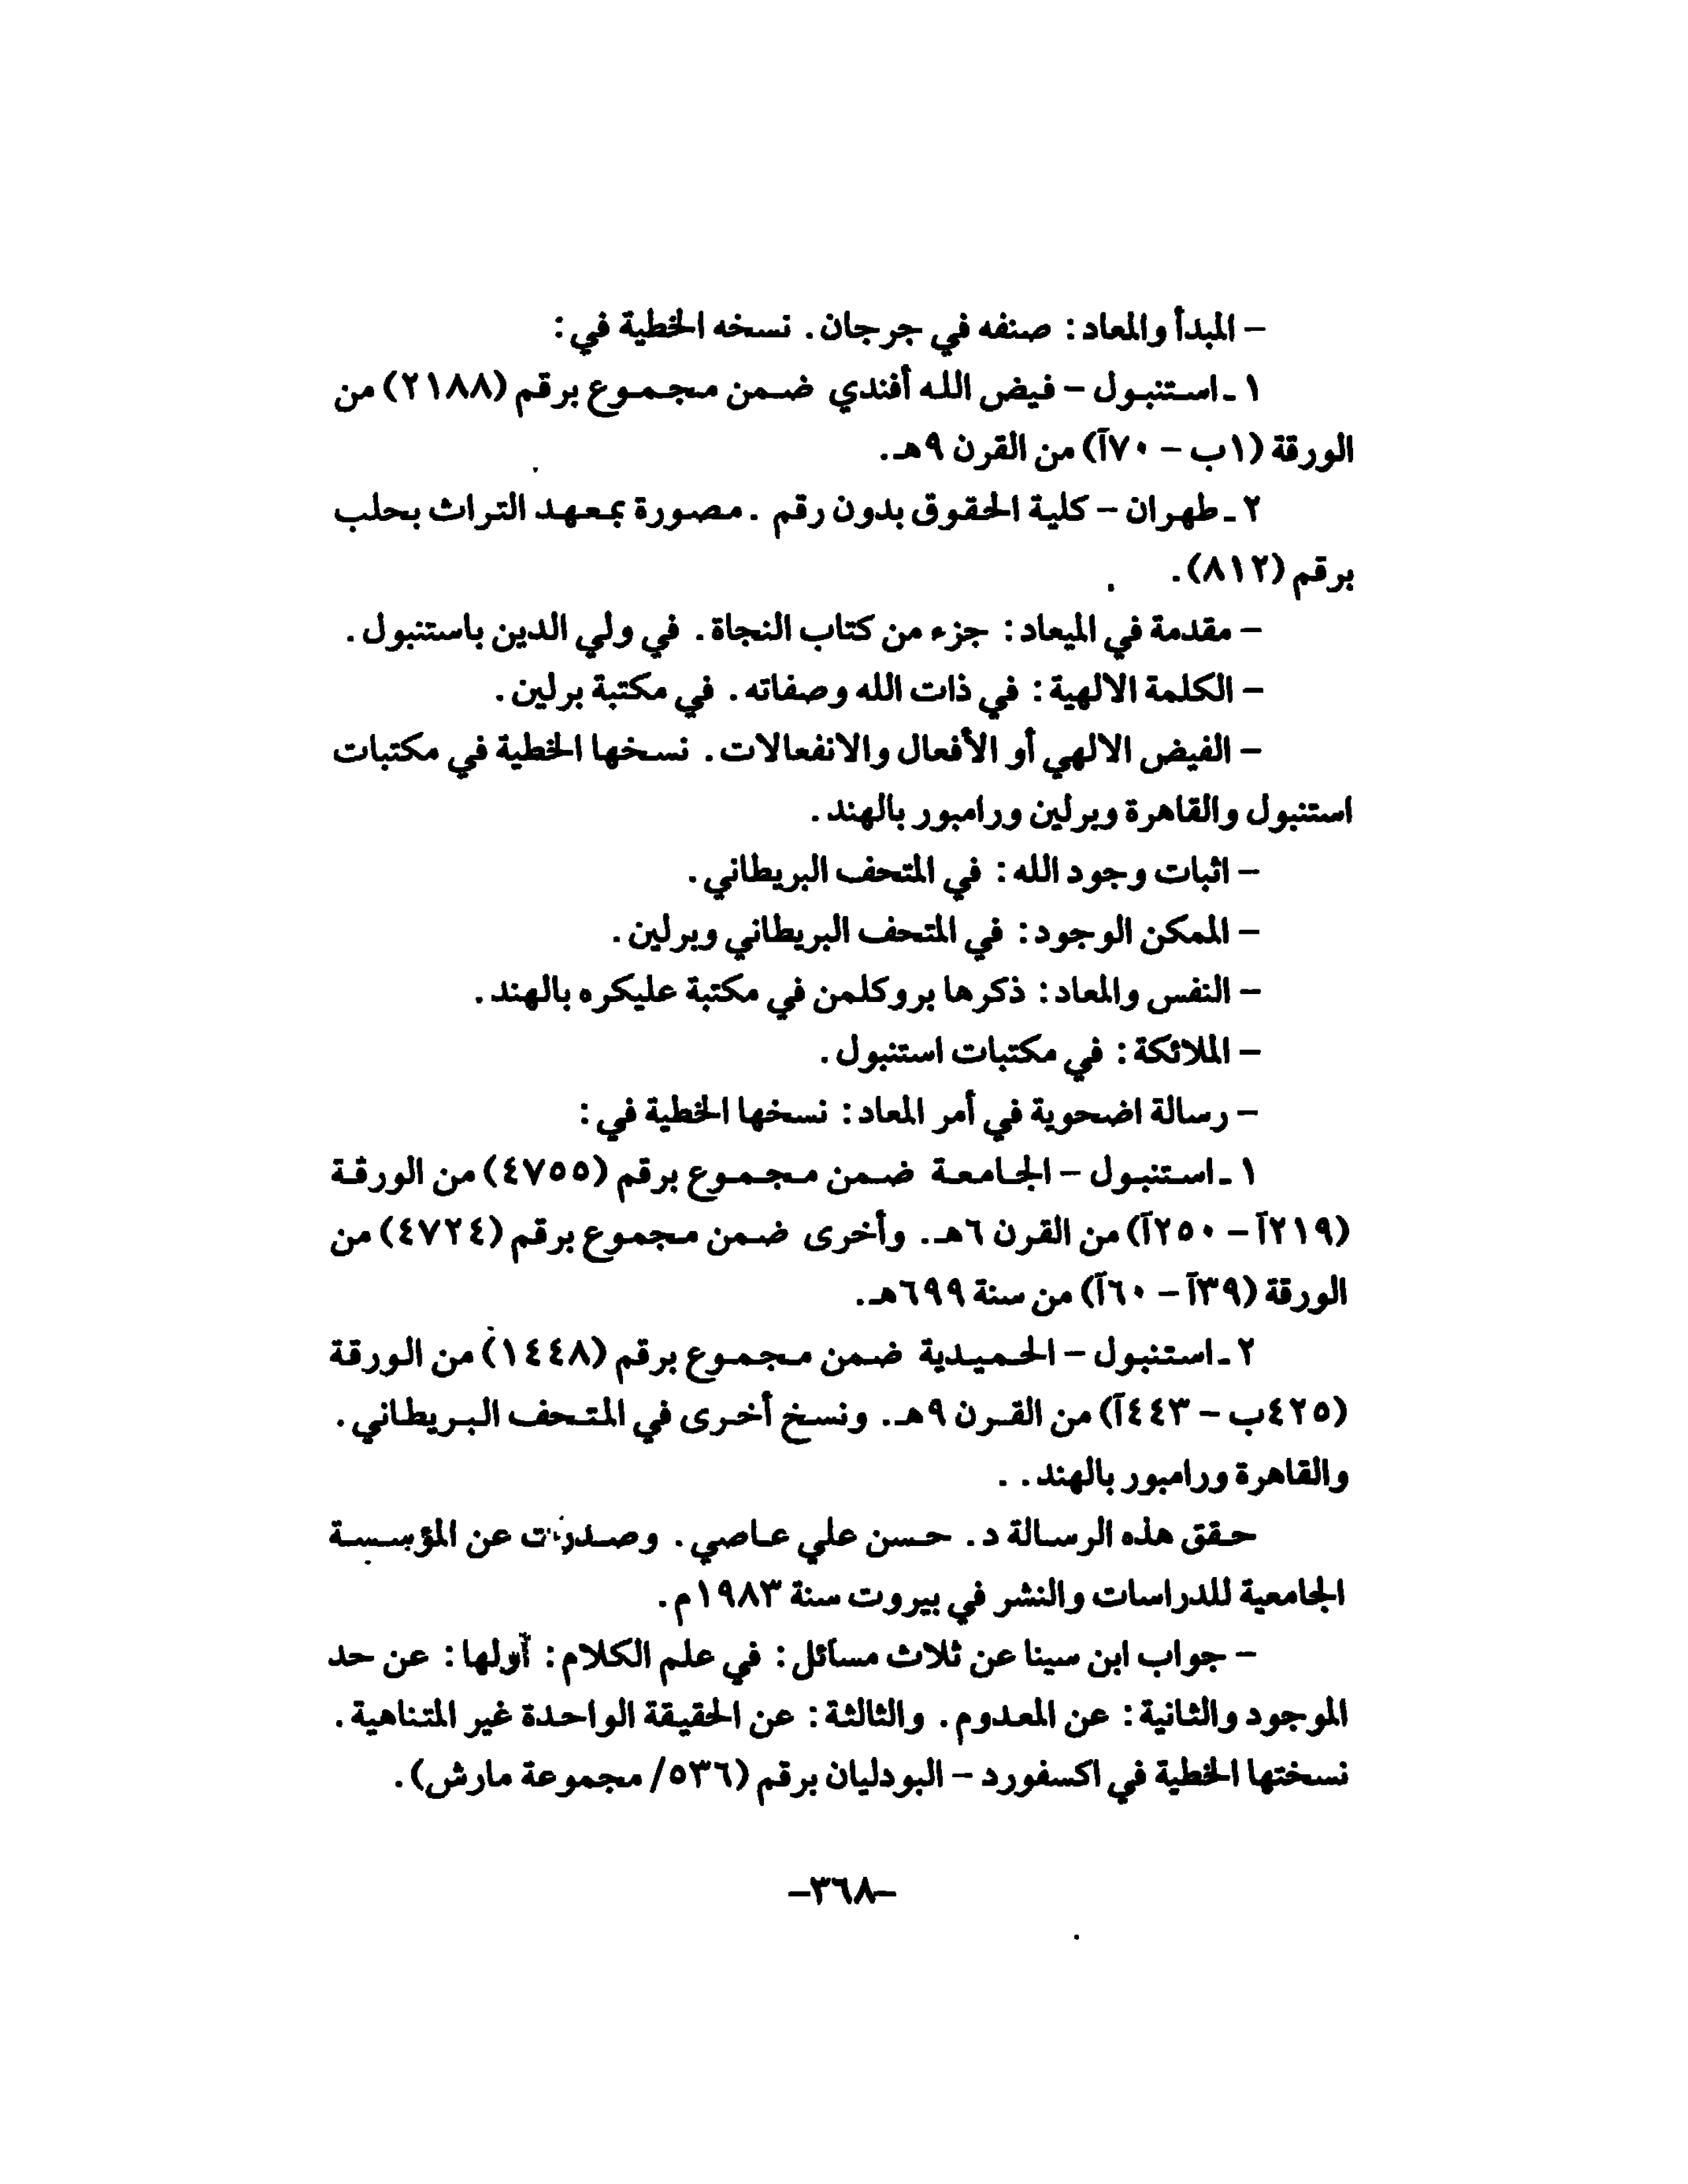 – المبدأ والمعاد: صنفه في جرجان. نسخه الخطية في:
١ ـ استنبول – فيض الله أفندي ضمن مجموع برقم (٢١٨٨) من
الورقة (١ب – ٧٠آ) من القرن ٩هـ.
٢ ـ طهران – كلية الحقوق بدون رقم. مصورة بمعهد التراث بحلب
برقم (٨١٢).
– مقدمة في الميعاد: جزء من كتاب النجاة. في ولي الدين باستنبول.
– الكلمة الالهية: في ذات الله وصفاته. في مكتبة برلين.
– الفيض الالهي أو الأفعال والانفعالات. نسخها الخطية في مكتبات
استنبول والقاهرة وبرلين ورامبور بالهند.
– اثبات وجود الله: في المتحف البريطاني.
– الممكن الوجود: في المتحف البريطاني وبرلين.
– النفس والمعاد: ذكرها بروكلمن في مكتبة عليكره بالهند.
– الملائكة: في مكتبات استنبول.
– رسالة اضحوية في أمر المعاد: نسخها الخطية في:
١ ـ استنبول – الجامعة ضمن مجموع برقم (٤٧٥٥) من الورقة
(٢١٩آ – ٢٥٠آ) من القرن ٦هـ. وأخرى ضمن مجموع برقم (٤٧٢٤) من
الورقة (٣٩آ – ٦٠آ) من سنة ٦٩٩هـ.
٢ ـ استنبول – الحميدية ضمن مجموع برقم (١٤٤٨) من الورقة
(٤٢٥ب – ٤٤٣آ) من القرن ٩هـ. ونسخ أخرى في المتحف البريطاني.
والقاهرة ورامبور بالهند. .
حقق هذه الرسالة د. حسن علي عاصي. وصدرت عن المؤسسة
الجامعية للدراسات والنشر في بيروت سنة ١٩٨٣م.
– جواب ابن سينا عن ثلاث مسائل: في علم الكلام: أولها: عن حد
الموجود والثانية: عن المعدوم. والثالثة: عن الحقيقة الواحدة غير المتناهية.
نسختها الخطية في اكسفورد – البودليان برقم (٥٣٦/ مجموعة مارش).
–٣٦٨–